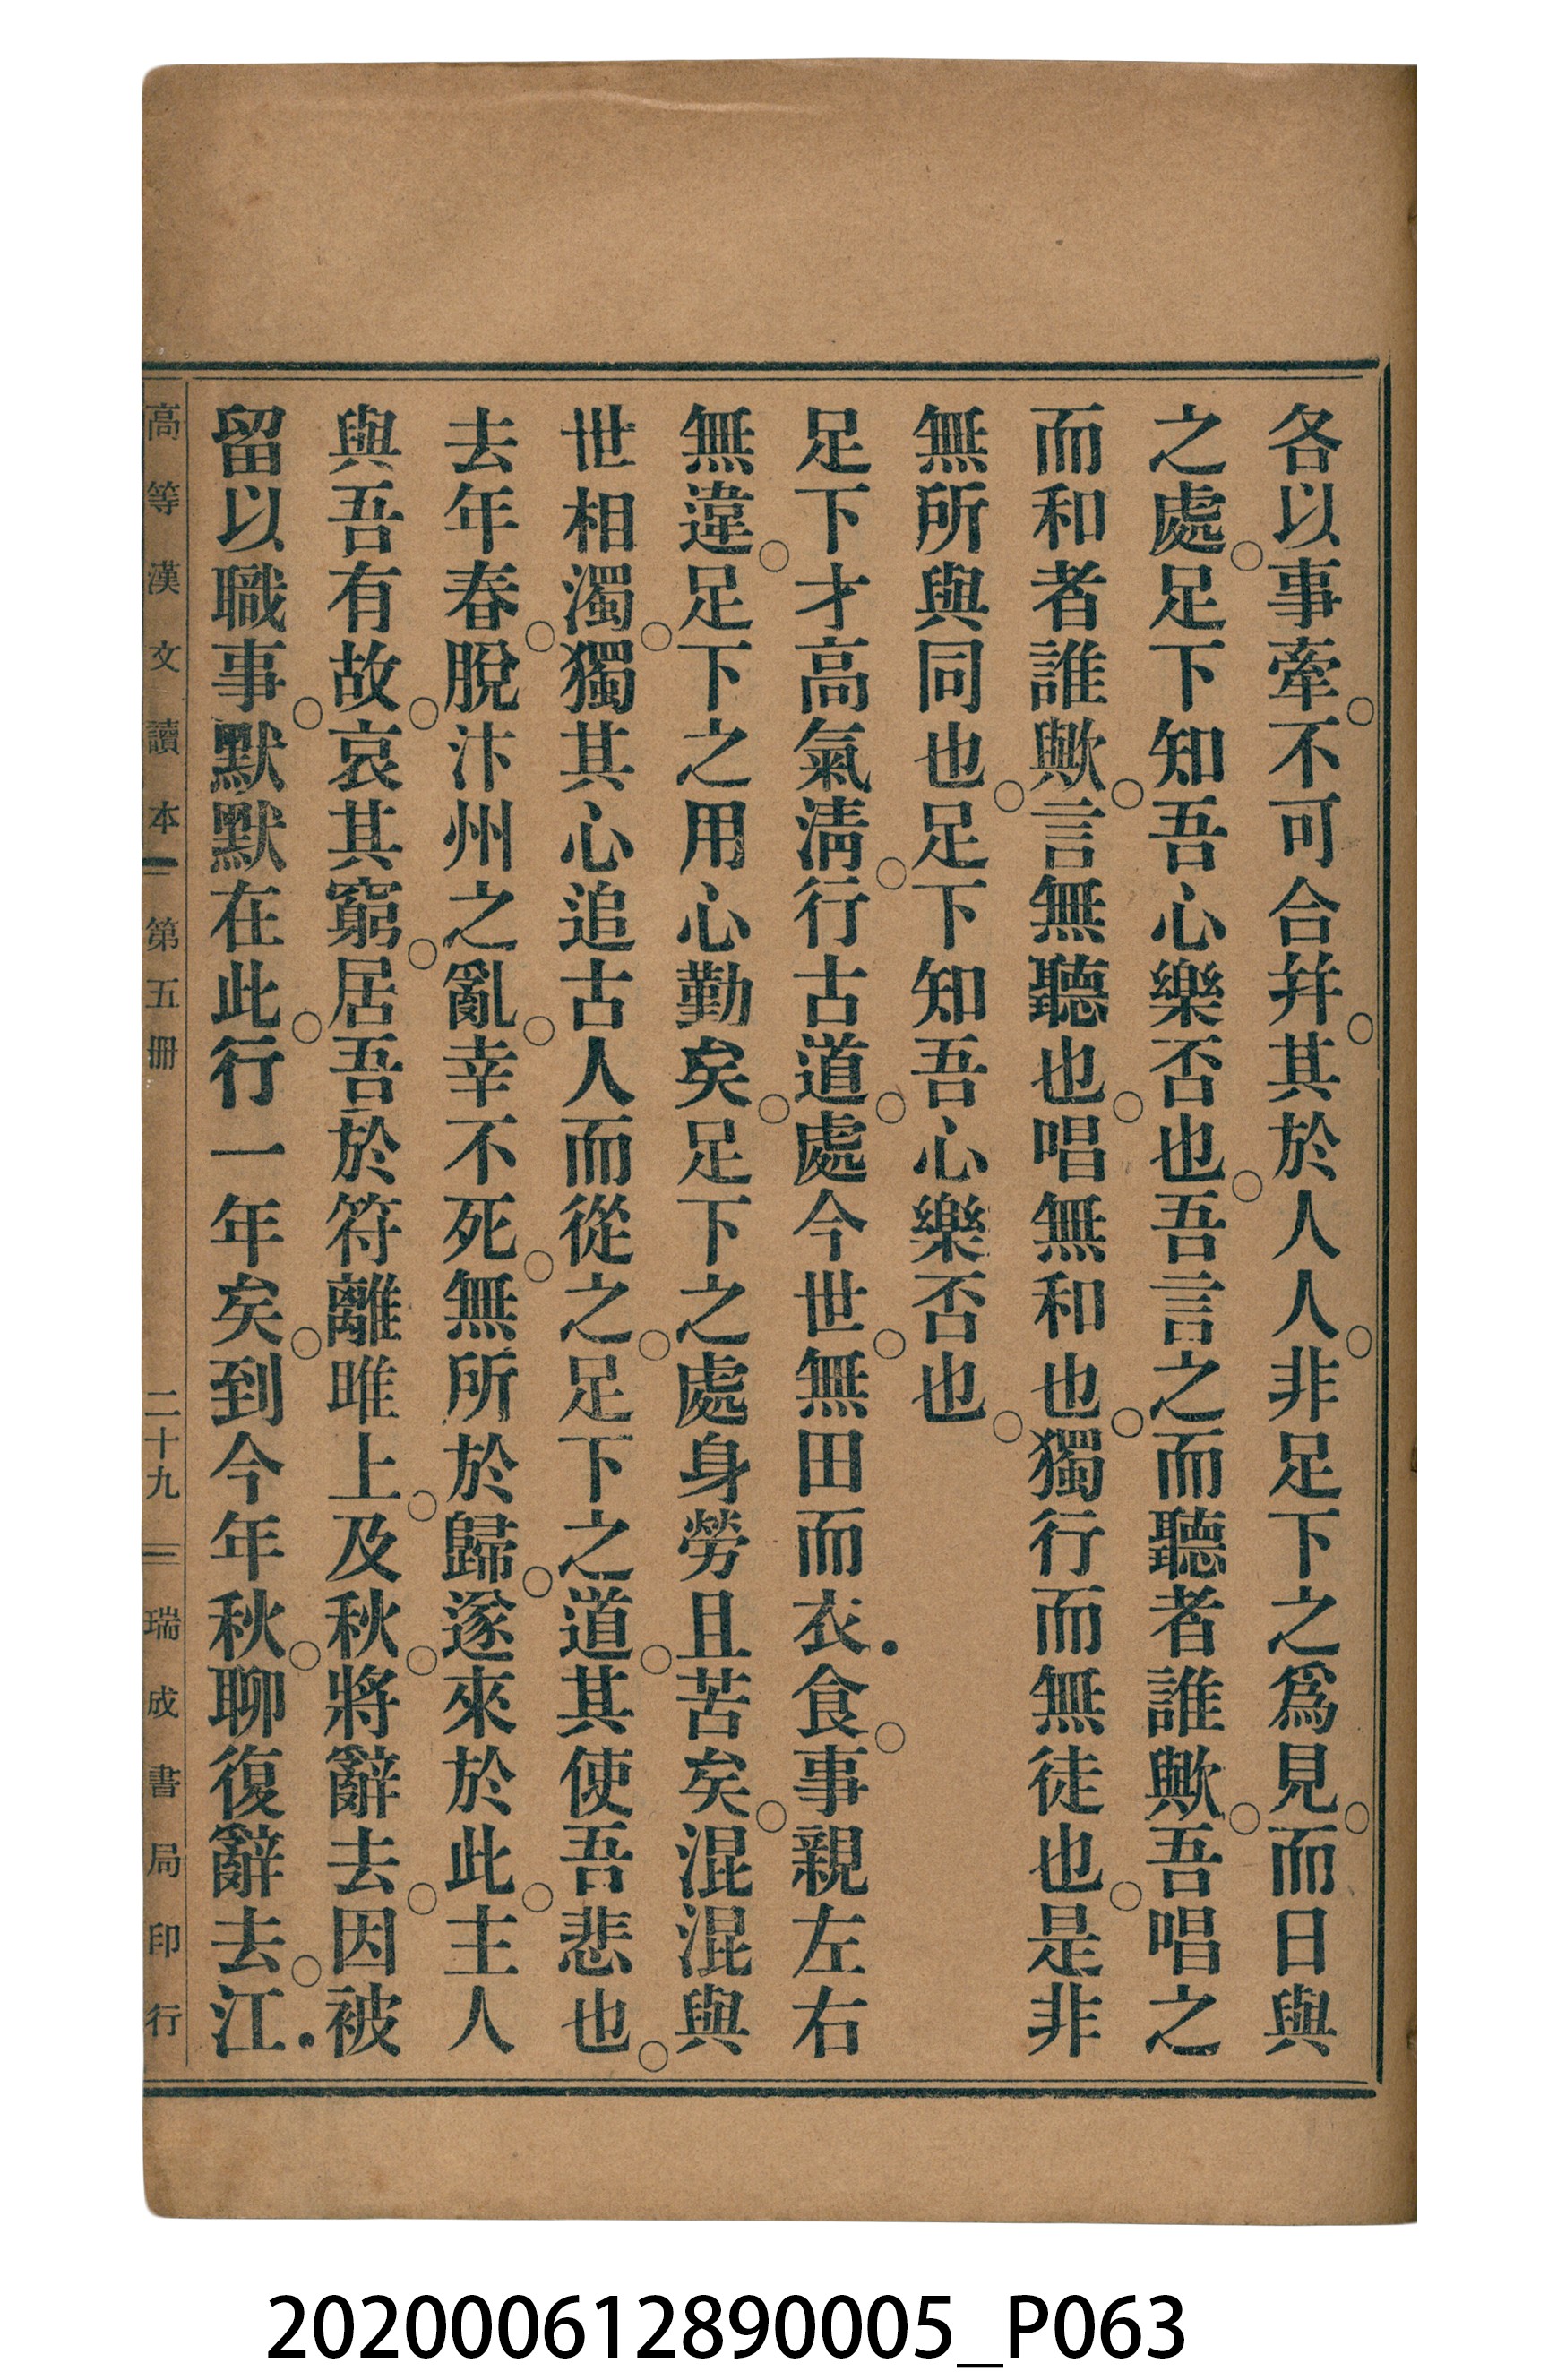 各以事牽。不可合幷。其於人人。非足下之爲見。而日與
之處。足下知吾心樂否也。吾言之而聽者誰歟。吾唱之
而和者誰歟。言無聽也。唱無和也。獨行而無徒也。是非
無所與同也。足下知吾心樂否也。
足下才高氣淸。行古道。處今世。無田而衣．食。事親左右
無違。足下之用心勤矣。足下之處身勞且苦矣。混混與
世相濁。獨其心追古人而從之。足下之道。其使吾悲也。
去年春。脫汴州之亂。幸不死。無所於歸。遂來於此。主人
與吾有故。哀其窮。居吾於符離雎上。及秋。將辭去。因被
留以職事。默默在此。行一年矣。到今年秋。聊復辭去。江．
高等漢文讀本 第五冊 二十九 瑞成書局印行
202000612890005_P063